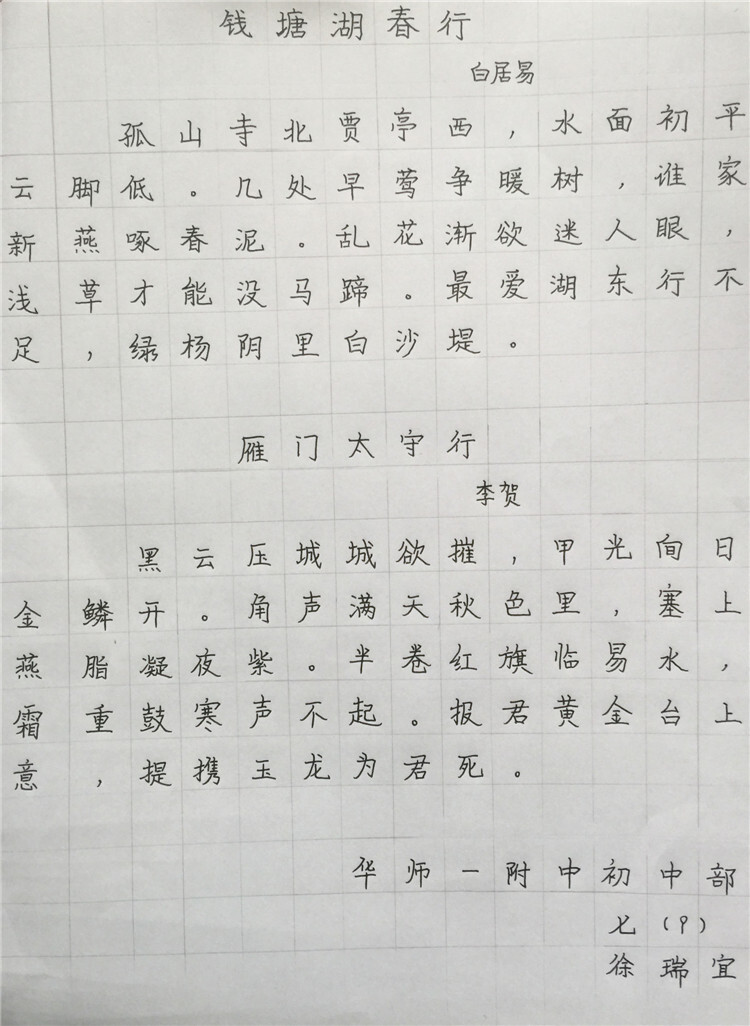 钱塘湖春行
白居易
孤山寺北贾亭西，水面初平
云脚低。几处早莺争暖树，谁家
新燕啄春泥。乱花渐欲迷人眼，
浅草才能没马蹄。最爱湖东行不
足，绿杨阴里白沙堤。
雁门太守行
李贺
黑云压城城欲摧，甲光向日
金鳞开。角声满天秋色里，塞上
燕脂凝夜紫。半卷红旗临易水，
霜重鼓寒声不起。报君黄金台上
意，提携玉龙为君死。
华师一附中初中部
七（9）
徐瑞宜